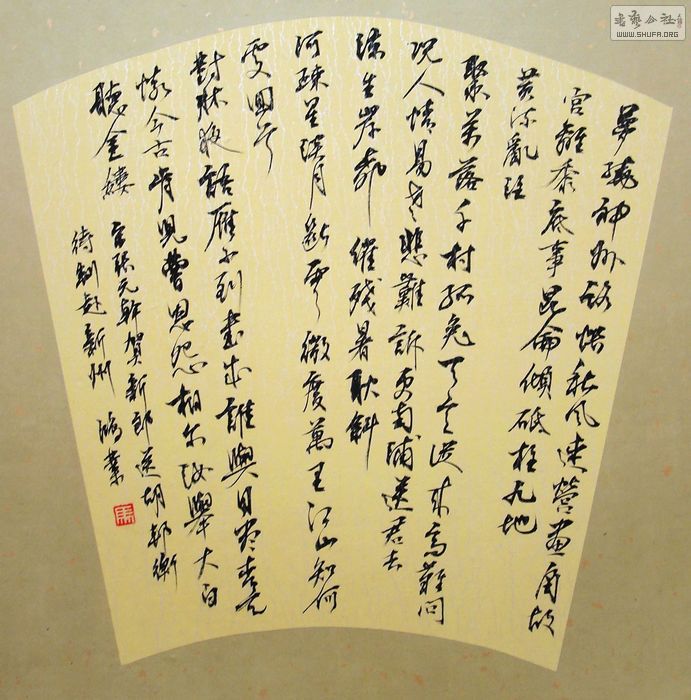 夢繞神州路悵秋風連營畫角故
宮離黍底事昆侖傾砥柱九地
黃流亂注
聚萬落千村狐兔天意從來高難問
況人情易老悲難訴更南浦送君去
涼生岸柳催殘暑耿斜
河疎星淡月斷雲微度萬里江山知何
處回首
對牀夜語雁不到書成誰與目盡青天
懷今古肯兒曹恩怨相尔汝舉大白
聽金縷 宋張元幹賀新郎送胡邦衡
待制赴新州 鴻業
書藝公社
WWW.SHUFA.ORG